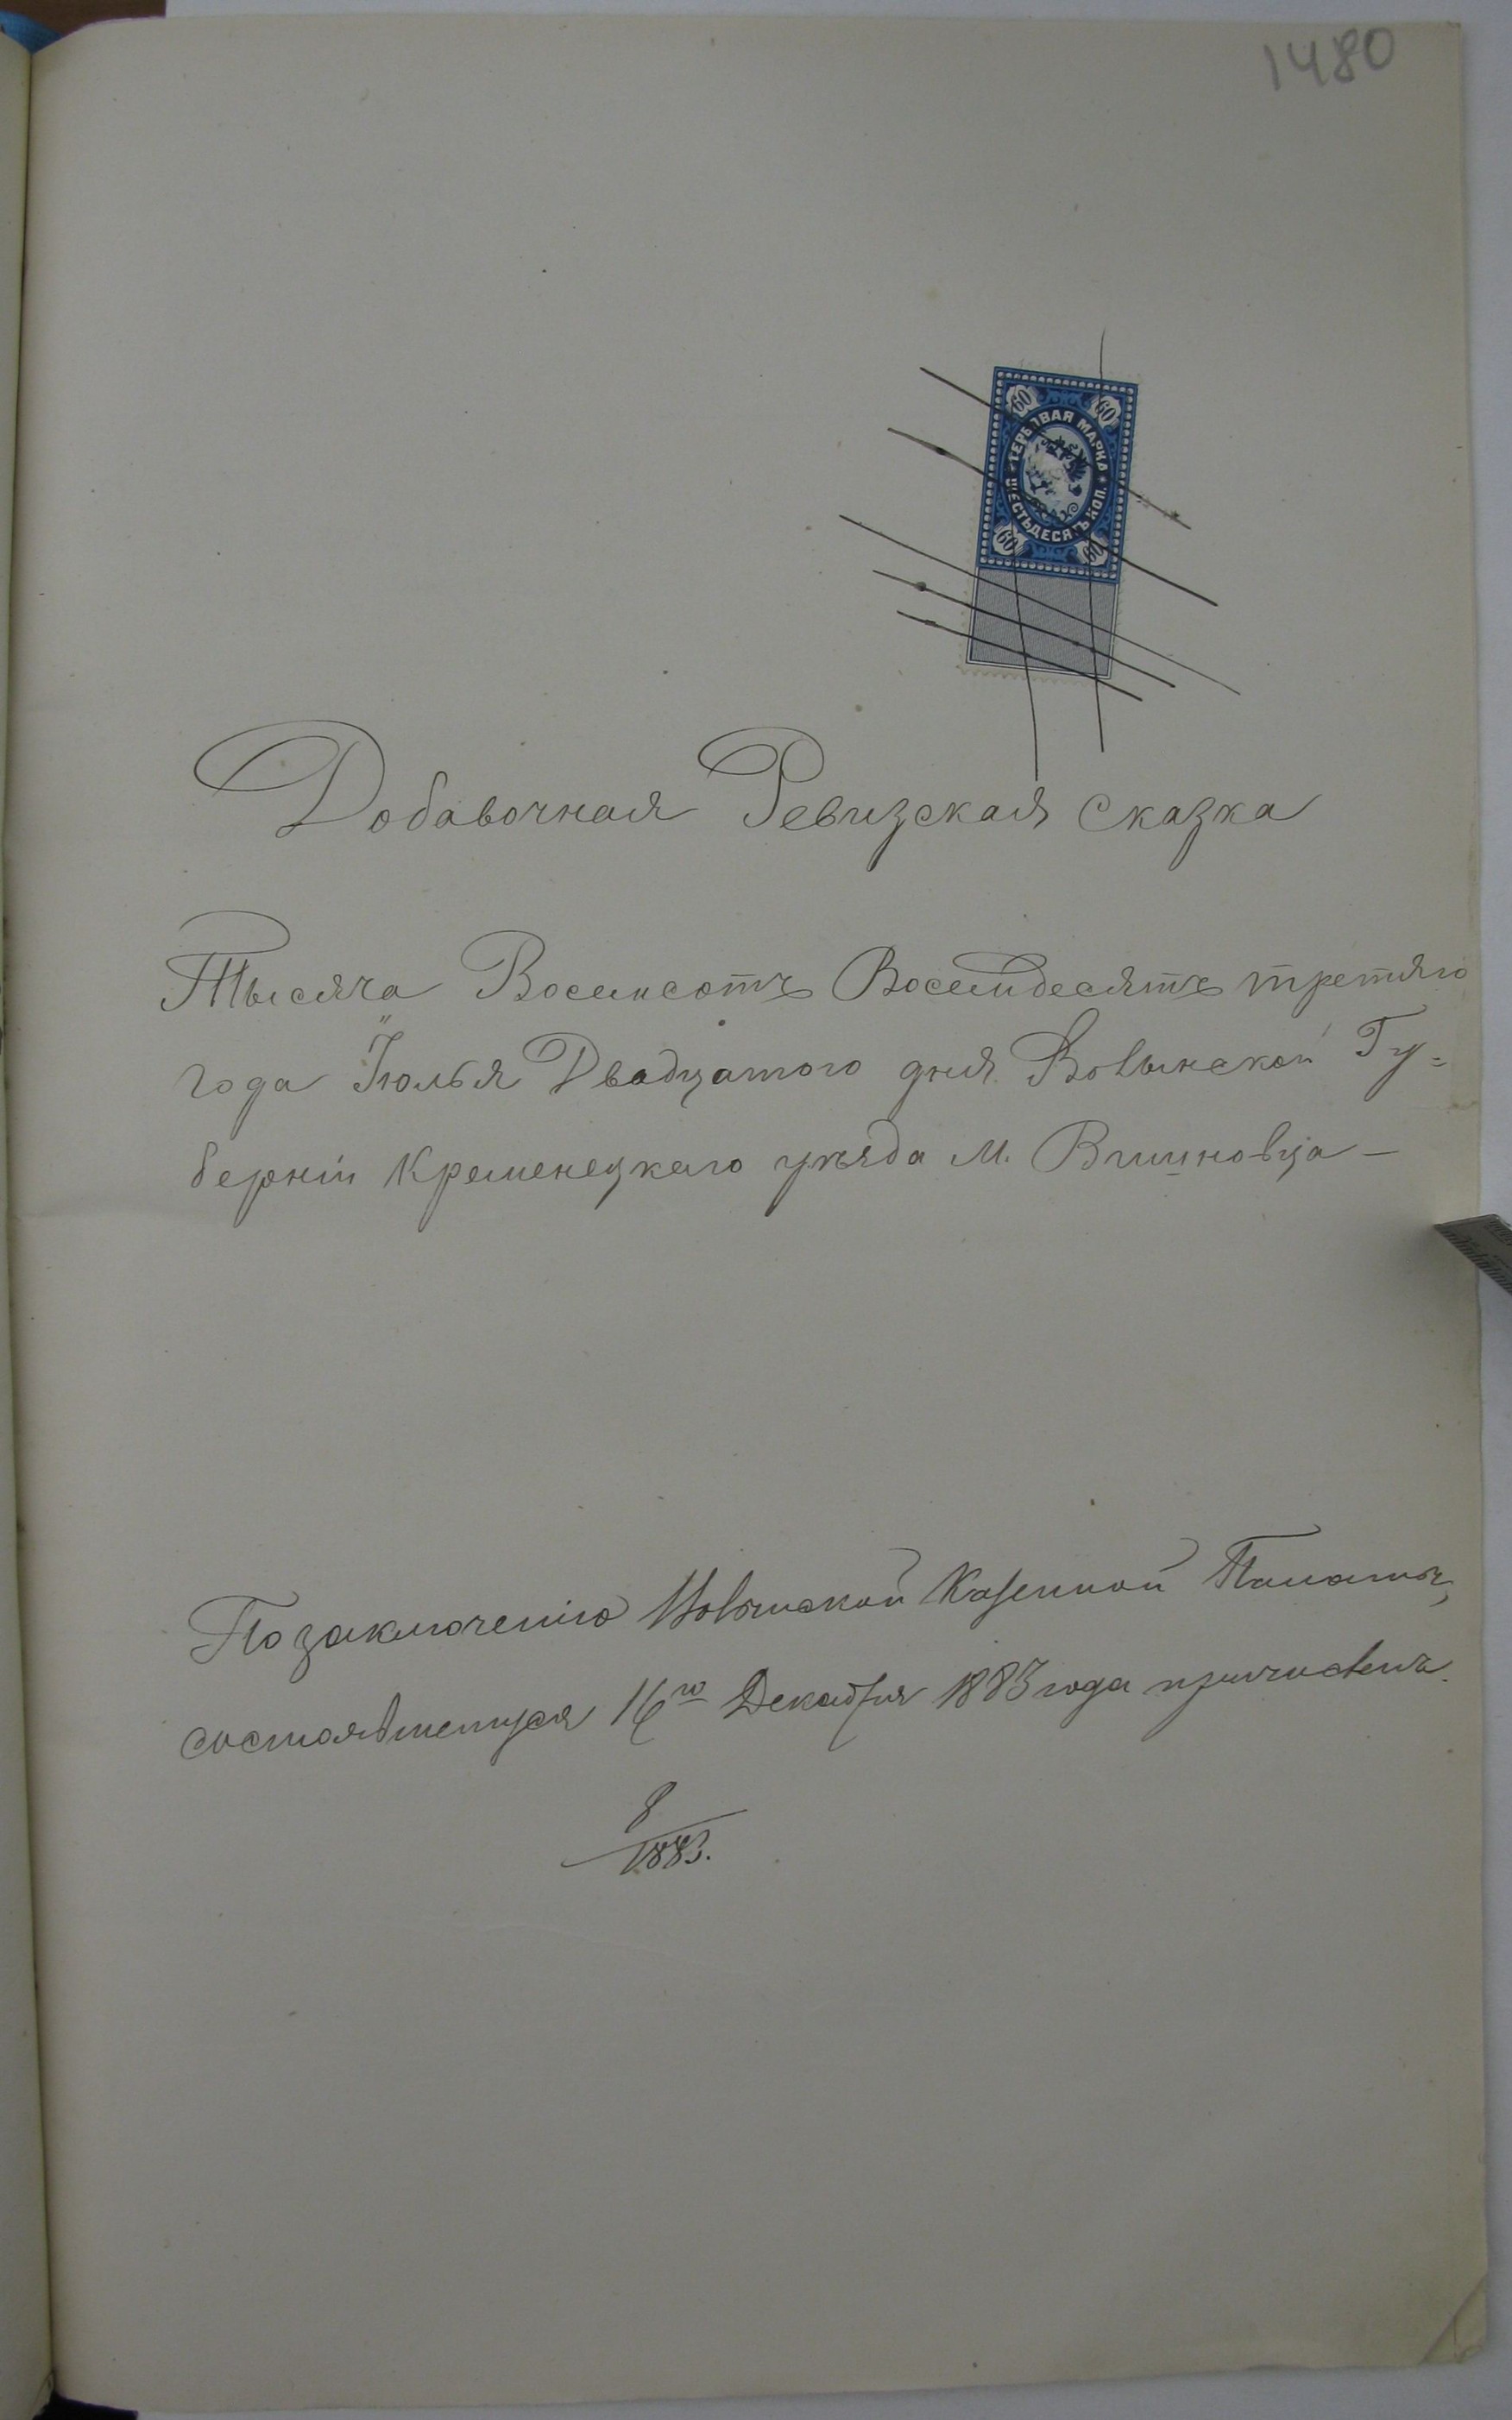 1480
60 60
ГЕРБОВАЯ МАРКА
ШЕСТЬДЕСЯТЪ КОП.
60 60
Добавочная Ревизская сказка
Тысяча Восемсотъ Восемдесятъ третяго
года Іюлья Двадцатого дня Волынской Гу=
берніи Кременецкаго уѣзда М. Вишновца –
По заключенію Волынской Казенной Палаты,
состоявшемуся 16го Декабря 1883 года причислен
8
1883.